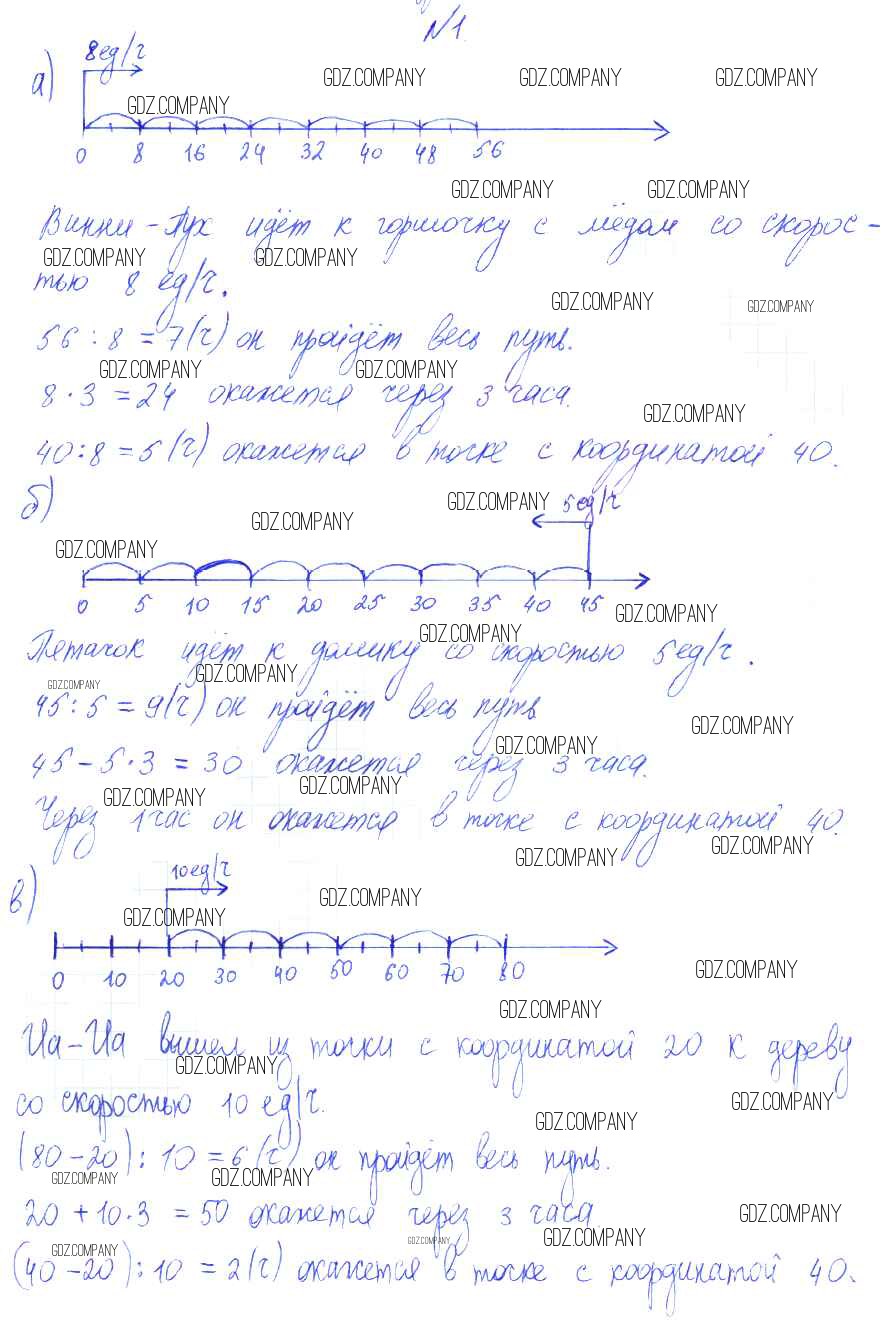 №1.
а) 8ед/ч
GDZ.COMPANY GDZ.COMPANY GDZ.COMPANY
GDZ.COMPANY
0 8 16 24 32 40 48 56
GDZ.COMPANY GDZ.COMPANY
Винни-Пух идёт к горшочку с мёдом со скорос-
GDZ.COMPANY GDZ.COMPANY
тью 8 ед/ч.
GDZ.COMPANY GDZ.COMPANY
56 : 8 = 7(ч) он пройдёт весь путь.
GDZ.COMPANY GDZ.COMPANY
8 · 3 = 24 окажется через 3 часа.
GDZ.COMPANY
40 : 8 = 5 (ч) окажется в точке с координатой 40.
б) GDZ.COMPANY 5ед/ч
GDZ.COMPANY
GDZ.COMPANY
0 5 10 15 20 25 30 35 40 45
GDZ.COMPANY
GDZ.COMPANY
Пятачок идёт к домику со скоростью 5ед/ч.
GDZ.COMPANY
GDZ.COMPANY
45 : 5 = 9(ч) он пройдёт весь путь
GDZ.COMPANY
GDZ.COMPANY
45 - 5 · 3 = 30 окажется через 3 часа.
GDZ.COMPANY GDZ.COMPANY
Через 1час он окажется в точке с координатой 40.
GDZ.COMPANY GDZ.COMPANY
в) 10ед/ч
GDZ.COMPANY
GDZ.COMPANY
0 10 20 30 40 50 60 70 80
GDZ.COMPANY
GDZ.COMPANY
Иа-Иа вышел из точки с координатой 20 к дереву
GDZ.COMPANY
со скоростью 10 ед/ч.
GDZ.COMPANY
GDZ.COMPANY
(80-20) : 10 = 6 (ч) он пройдёт весь путь.
GDZ.COMPANY GDZ.COMPANY
20 + 10 · 3 = 50 окажется через 3 часа.
GDZ.COMPANY
GDZ.COMPANY GDZ.COMPANY GDZ.COMPANY
(40-20) : 10 = 2(ч) окажется в точке с координатой 40.